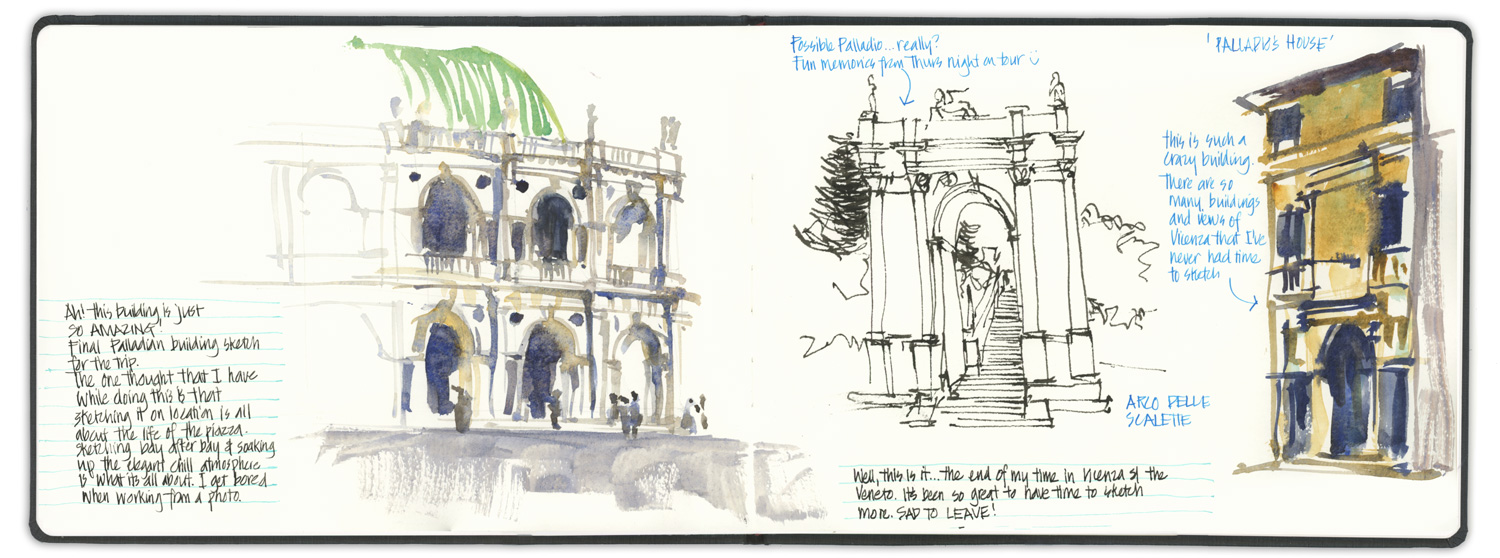 Ah! this building is just
SO AMAZING!
Final Palladian building sketch
for the trip.
The one thought that I have
while doing this is that
sketching it on location is all
about the life of the piazza.
Sketching bay after bay & soaking
up the elegant chill atmosphere
is what its all about. I get bored
when working from a photo.
Possible Palladio...really?
Fun memories from Thurs night on tour
ARCO DELLE
SCALETTE
Well, this is it... the end of my time in Vicenza & the
Veneto. It's been so great to have time to sketch
more. SAD TO LEAVE!
'PALLADIO'S HOUSE'
this is such a
crazy building.
There are so
many buildings
and views of
Vicenza that I've
never had time
to sketch